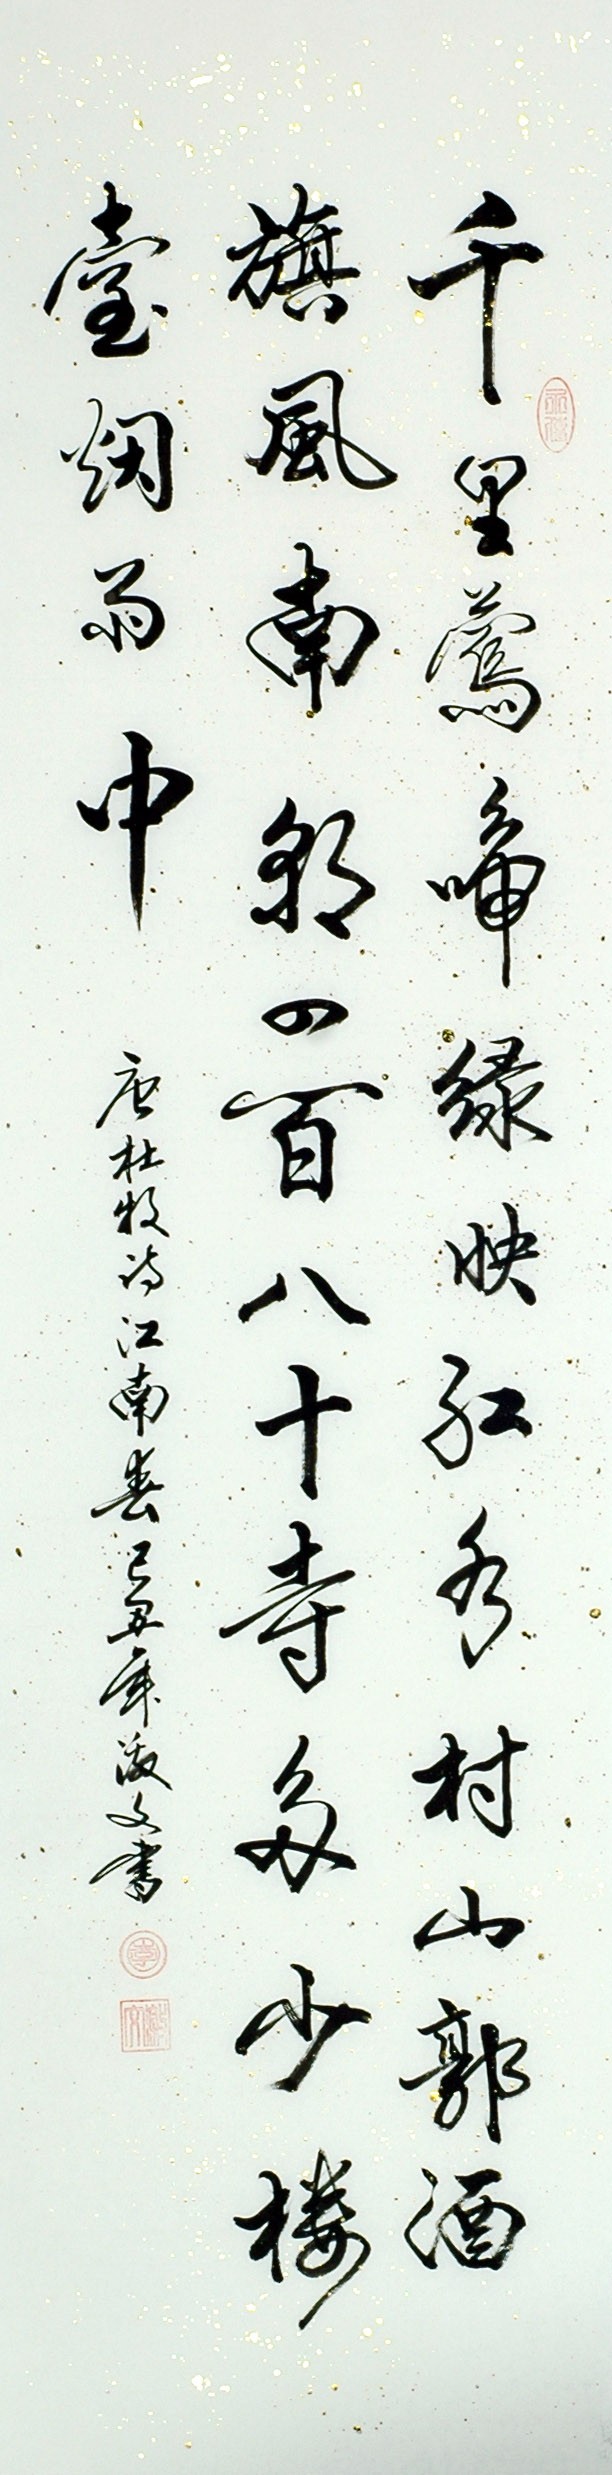 千里鶯啼緑映红水村山郭酒
旗風南朝四百八十寺多少楼
臺烟雨中
唐杜牧诗江南春己丑年文書
李